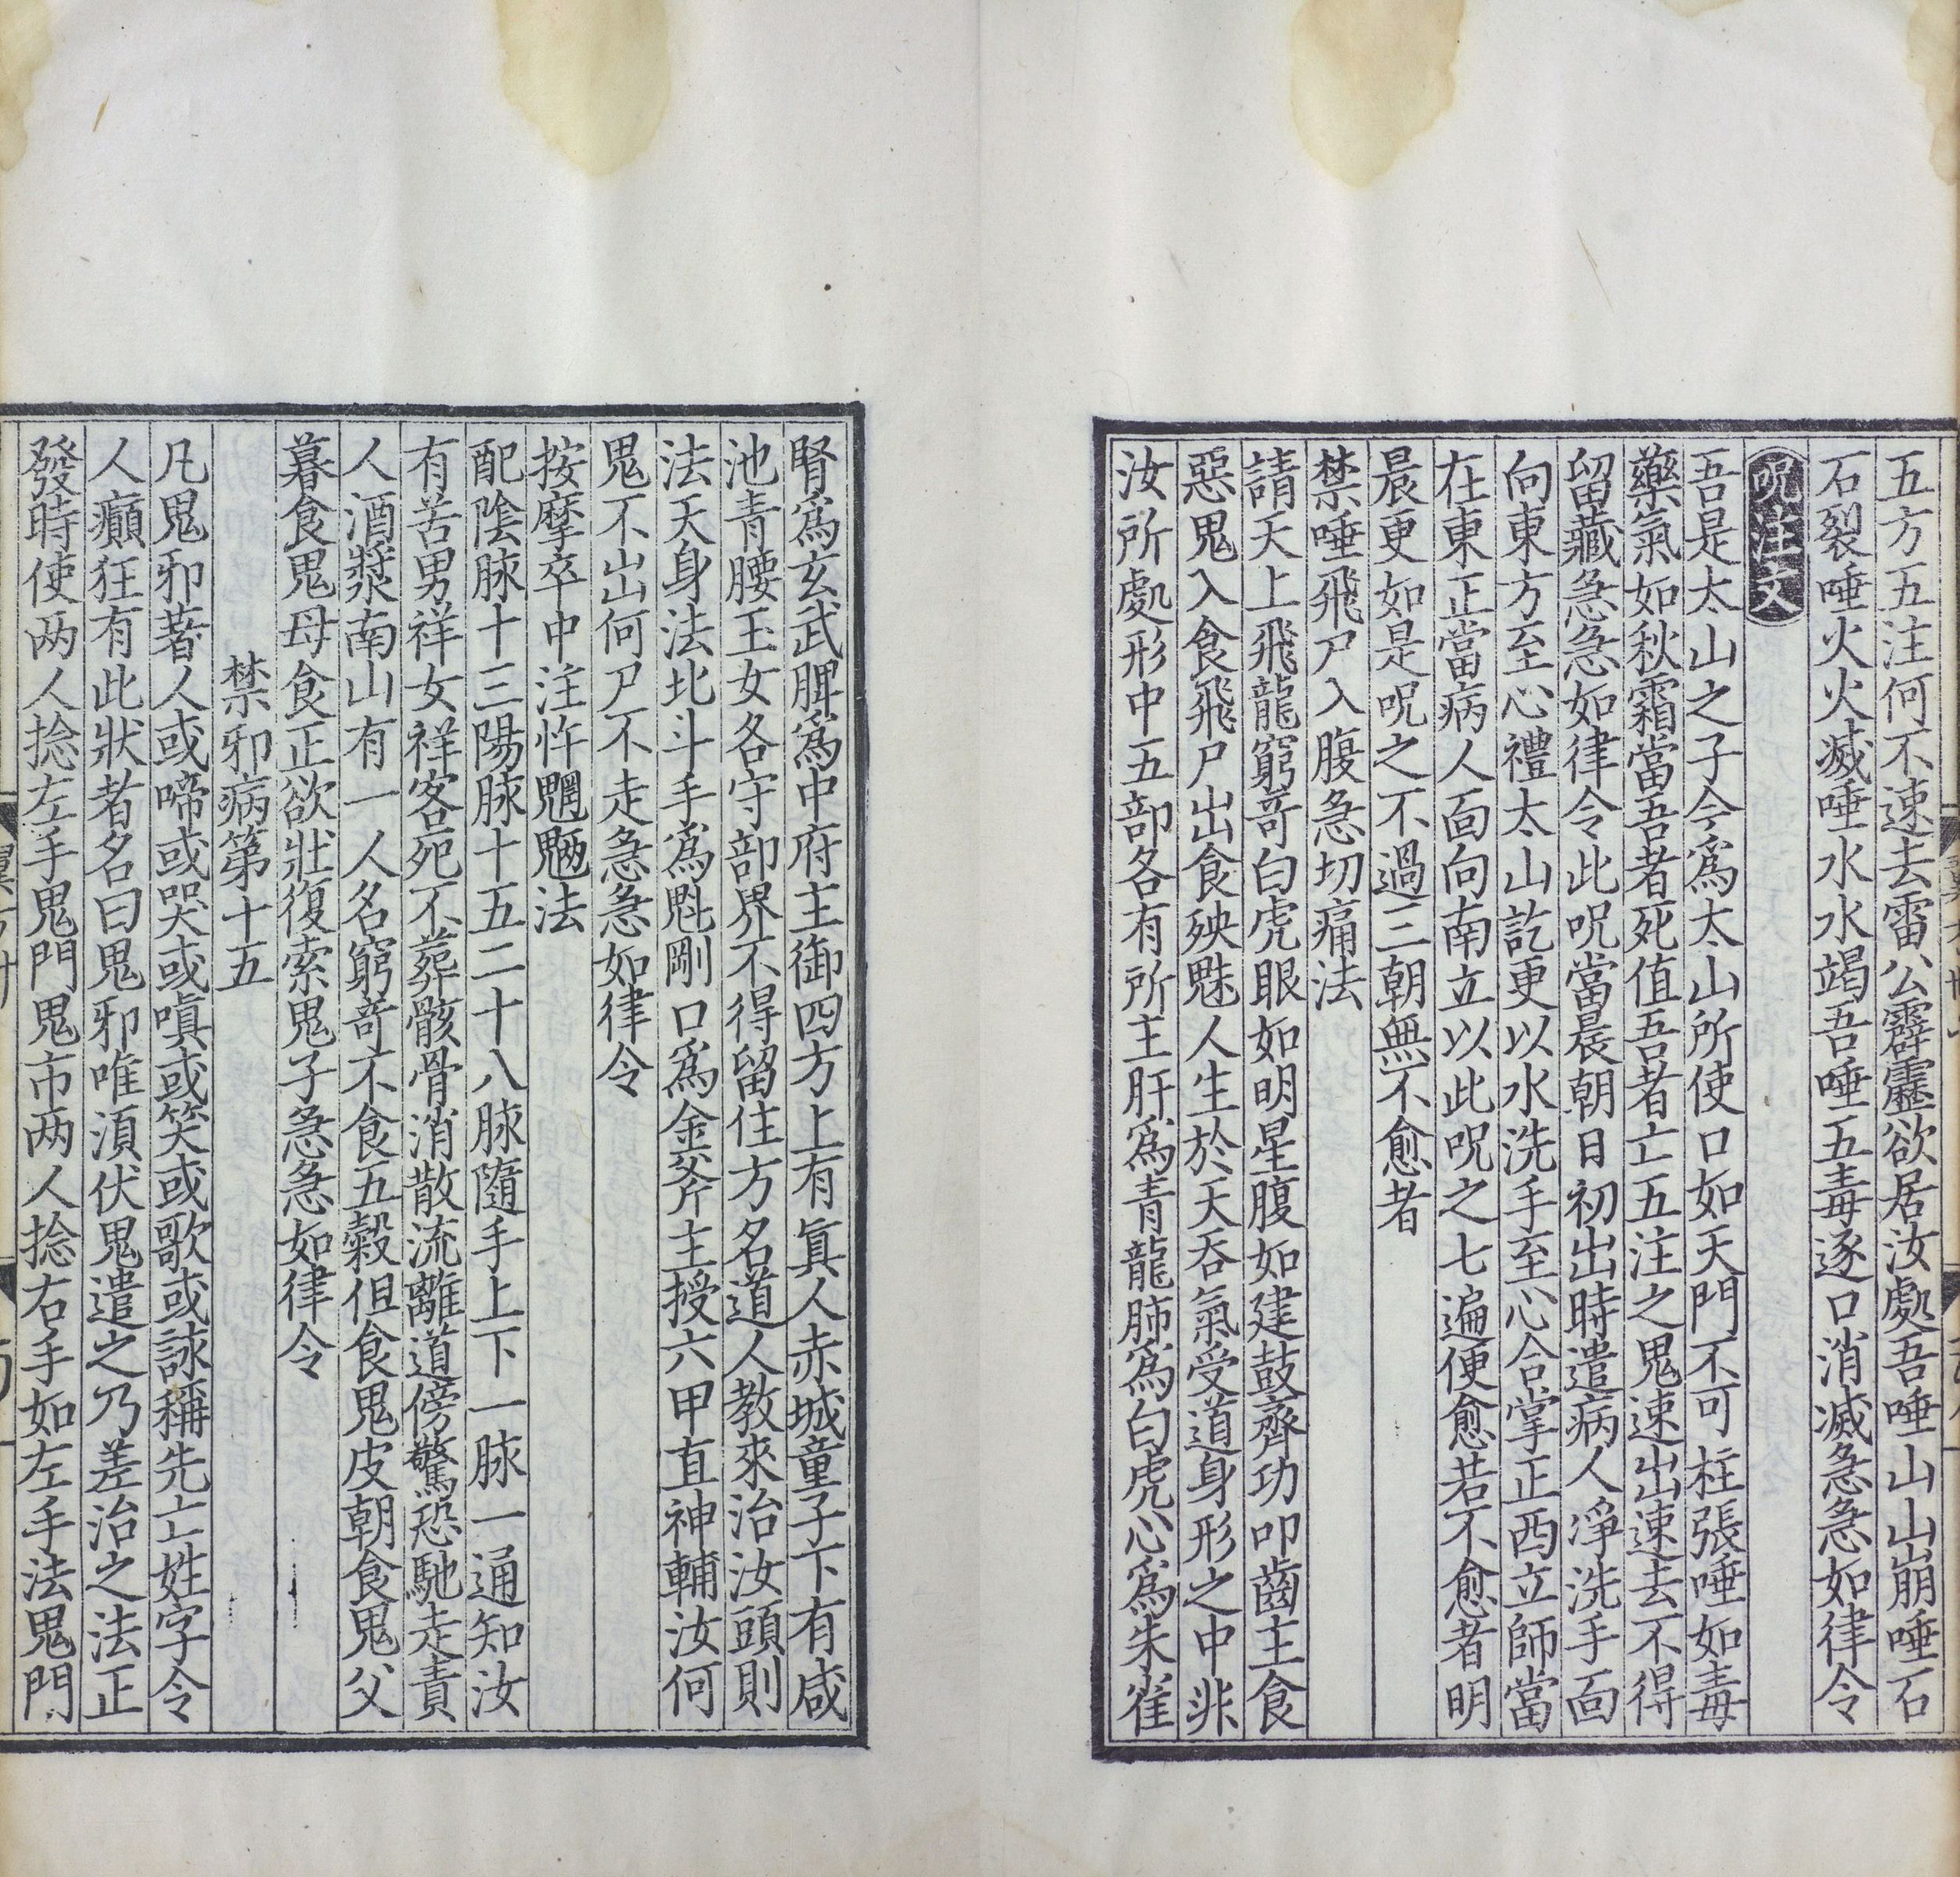 五方五注何不速去雷公霹靂欲居汝處吾唾山山崩唾石
石裂唾火火滅唾水水竭吾唾五毒逐口消滅急急如律令
呪注文
吾是太山之子今爲太山所使口如天門不可柱張唾如毒
藥氣如秋霜當吾者死值吾者亡五注之鬼速出速去不得
留藏急急如律令此呪當晨朝日初出時遣病人淨洗手面
向東方至心禮太山訖更以水洗手至心合掌正西立師當
在東正當病人面向南立以此呪之七遍便愈若不愈者明
晨更如是呪之不過三朝無不愈者
禁唾飛尸入腹急切痛法
請天上飛龍窮竒白虎眼如明星腹如建鼓齊功叩齒主食
惡鬼入食飛尸出食殃魅人生於天吞氣受道身形之中非
汝所處形中五部各有所主肝爲青龍肺爲白虎心爲朱雀
腎爲玄武脾爲中府主御四方上有真人赤城童子下有咸
池青腰玉女各守部界不得留住方名道人教來治汝頭則
法天身法北斗手爲魁剛口爲金斧主授六甲直神輔汝何
鬼不出何尸不走急急如律令
按摩卒中注忤魍魎法
配陰脉十三陽脉十五二十八脉隨手上下一脉一通知汝
有苦男祥女祥客死不葬骸骨消散流離道傍驚恐馳走責
人酒漿南山有一人名窮竒不食五穀但食鬼皮朝食鬼父
暮食鬼母食正欲壯復索鬼子急急如律令
禁邪病第十五
凡鬼邪著人或啼或哭或嗔或笑或歌或詠稱先亡姓字令
人癲狂有此狀者名曰鬼邪唯湏伏鬼遣之乃差治之法正
發時使两人捻左手鬼門鬼市两人捻右手如左手法鬼門